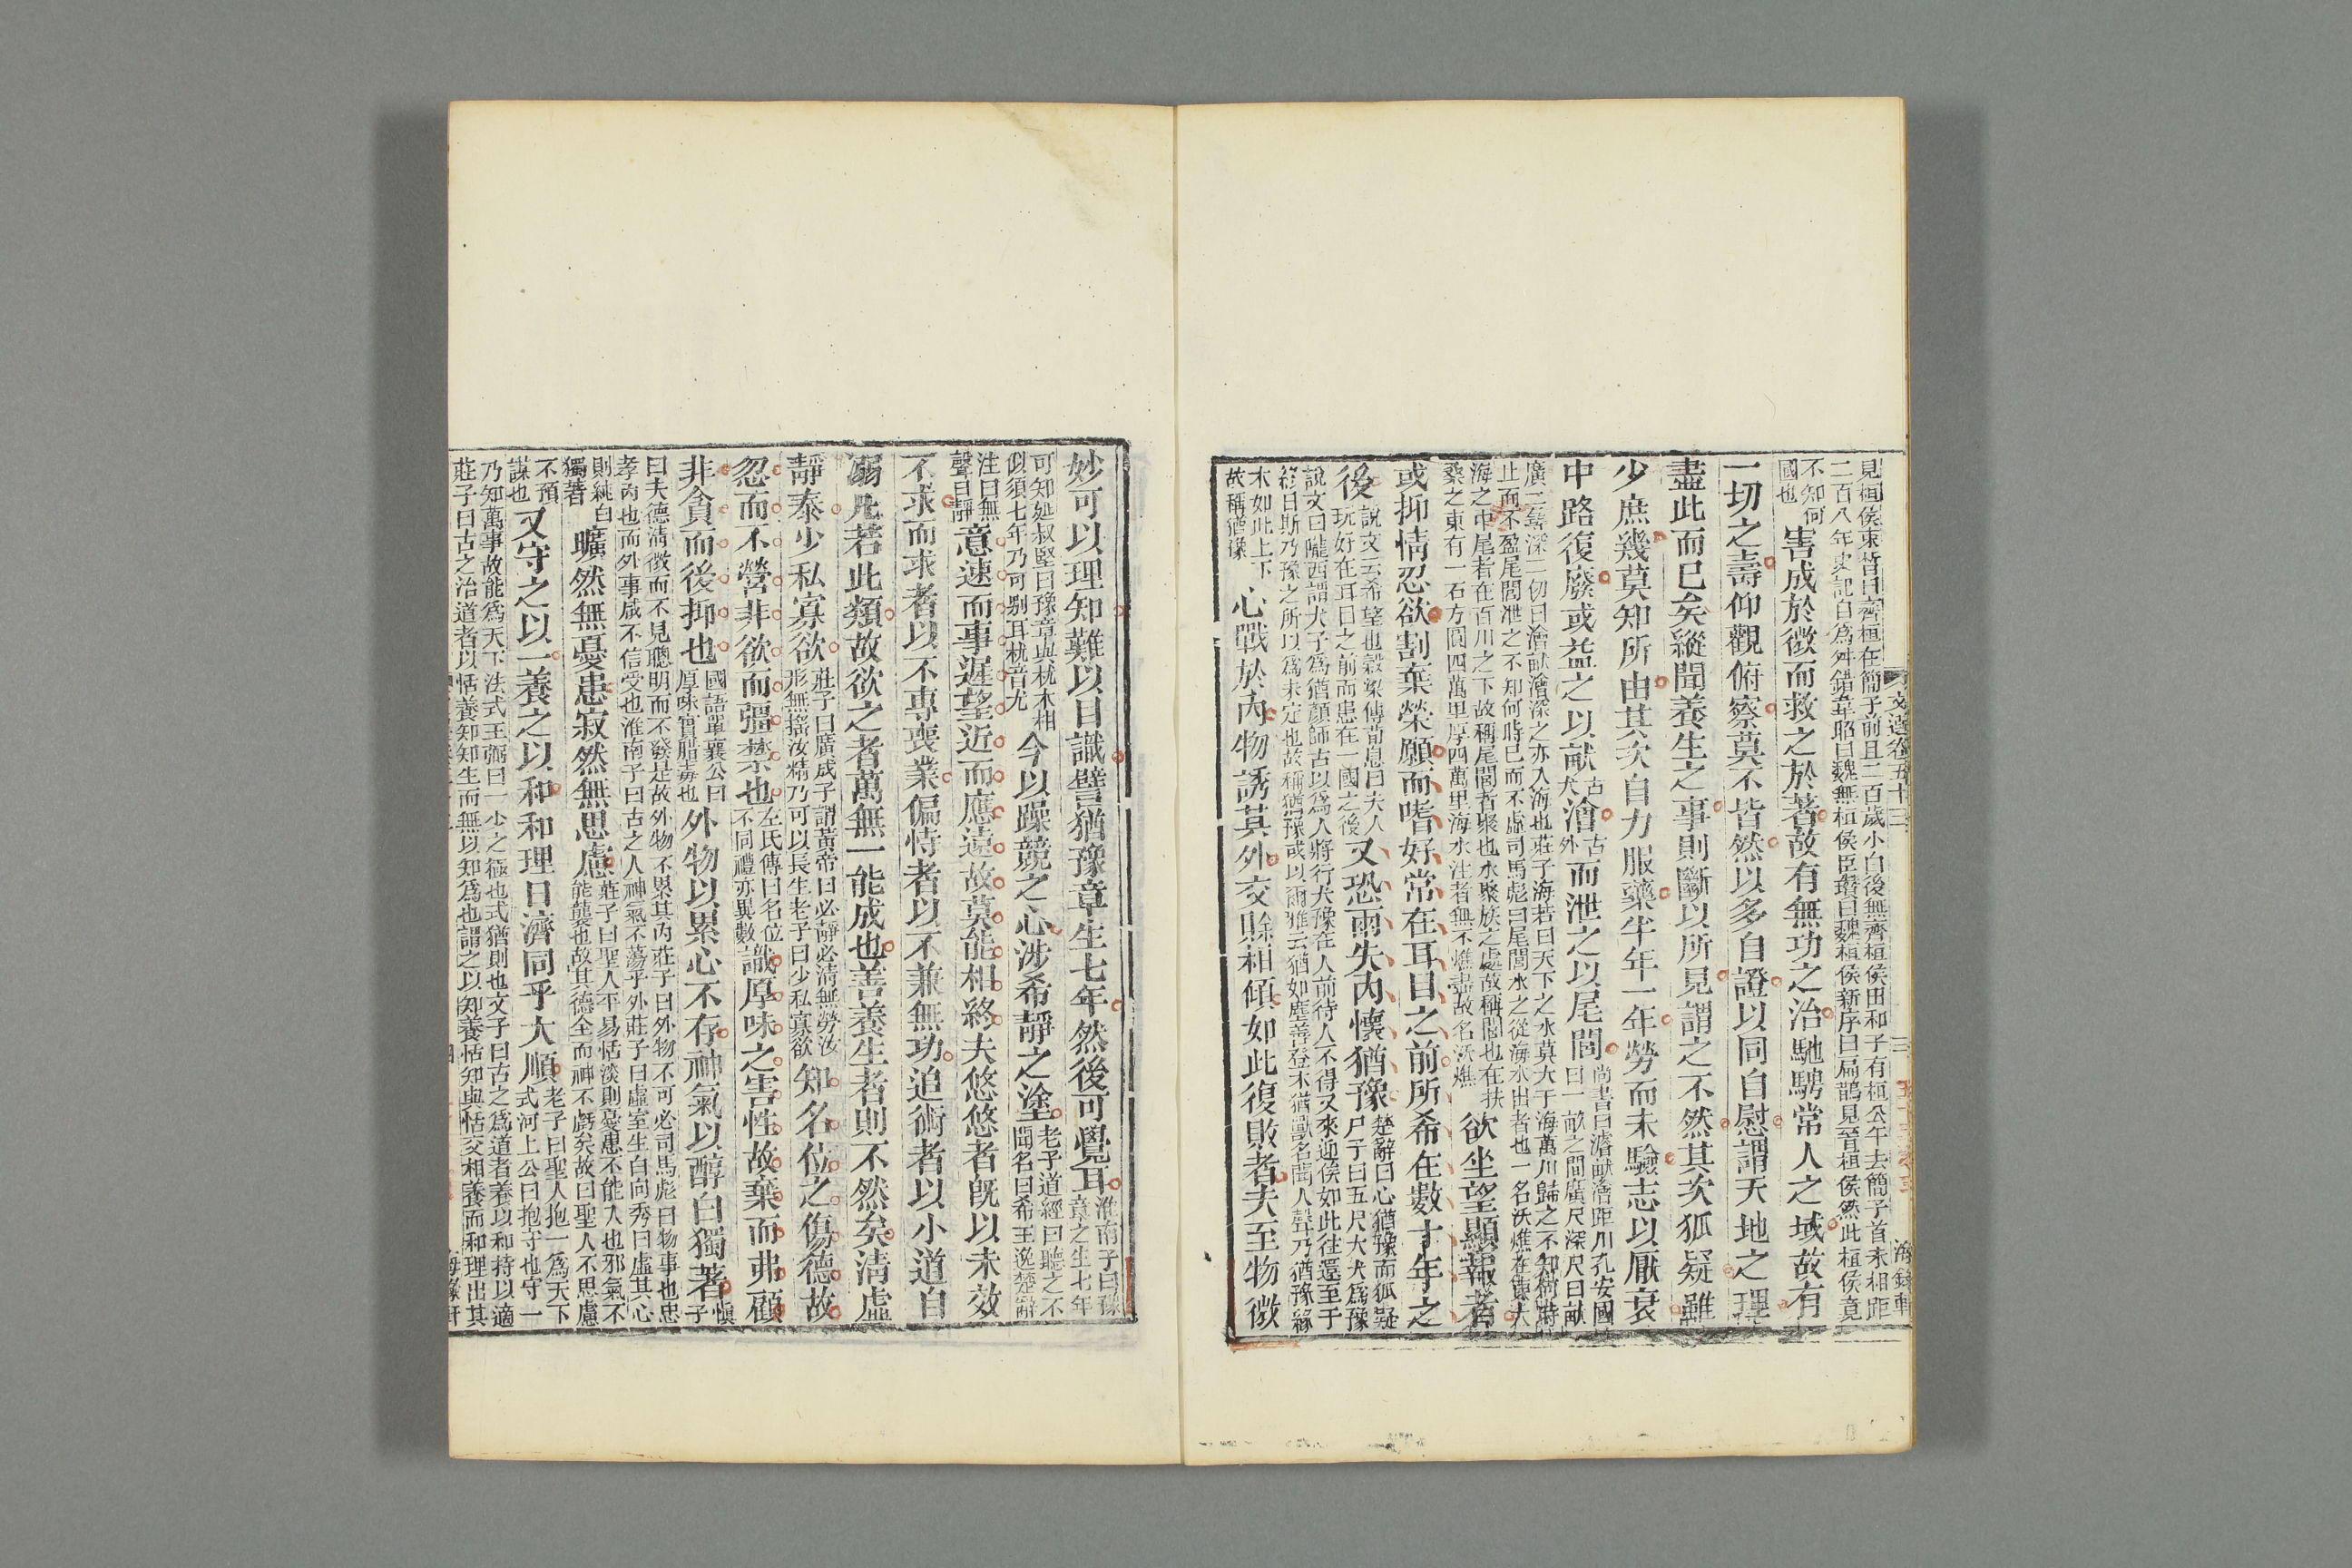 文選卷五十三
三
海錄軒
見桓侯束晳曰齊桓在簡子前且二百歲小白後無齊桓侯田和子有桓公午去簡子首末相距
二百八年史記自爲舛錯韋昭曰魏無桓侯臣瓚曰魏桓侯新序曰扁鵲見晉桓侯然此桓侯竟
不知何國也害成於微而救之於著故有無功之治馳騁常人之域故有
一切之壽仰觀俯察莫不皆然以多自證以同自慰謂天地之理
盡此而已矣縱聞養生之事則斷以所見謂之不然其次狐疑雖
少庶幾莫知所由其次自力服藥半年一年勞而未驗志以厭衰
中路復廢或益之以畎古犬澮古外而泄之以尾閭尚書曰濬畎澮距川孔安國曰一畝之間廣尺深尺曰畎
廣二尋深二仞曰澮畎澮深之亦入海也莊子海若曰天下之水莫大于海萬川歸之不知何時
止而不盈尾閭泄之不知何時已而不虛司馬彪曰尾閭水之從海水出者也一名沃燋在東大
海之中尾者在百川之下故稱尾閭者聚也水聚族之處故稱閭也在扶
桑之東有一石方圓四萬里厚四萬里海水注者無不燋盡故名沃燋欲坐望顯報者
或抑情忍欲割棄榮願而嗜好常在耳目之前所希在數十年之
後說文云希望也穀梁傳荀息曰夫人玩好在耳目之前而患在一國之後又恐兩失內懷猶豫楚辭曰心猶豫而狐疑尸子曰五尺大犬爲豫
說文曰隴西謂犬子爲猶顏師古以爲人將行犬豫在人前待人不得又來迎侯如此往還至于
終日斯乃豫之所以爲未定也故稱猶豫或以爾雅云猶如麈善登木猶獸名聞人聲乃猶豫緣
木如此上下故稱猶豫心戰於內物誘其外交賒相傾如此復敗者夫至物微
妙可以理知難以目識譬猶豫章生七年然後可覺耳淮南子曰豫章之生七年
可知延叔堅曰豫章與枕木相似須七年乃可别耳枕音尤今以躁競之心涉希靜之塗老子道經曰聽之不聞名曰希王逸楚辭
注曰無聲曰靜意速而事遲望近而應遠故莫能相終夫悠悠者既以未效
不求而求者以不專喪業偏恃者以不兼無功追術者以小道自
溺凡若此類故欲之者萬無一能成也善養生者則不然矣清虛
靜泰少私寡欲莊子曰廣成子謂黃帝曰必靜必清無勞汝形無搖汝精乃可以長生老子曰少私寡欲知名位之傷德故
忽而不營非欲而彊禁也左氏傳曰名位不同禮亦異數識厚味之害性故棄而弗顧
非貪而後抑也國語單襄公曰厚味寔腊毒也外物以累心不存神氣以醇白獨著愼子
曰夫德清微而不見聰明而不發是故外物不累其內莊子曰外物不可必司馬彪曰物事也忠
孝內也而外事咸不信受也淮南子曰古之人神氣不蕩乎外莊子曰虛室生白向秀曰虛其心
則純白獨著曠然無憂患寂然無思慮莊子曰聖人平易恬淡則憂患不能入也邪氣不能襲也故其德全而神不虧矣故曰聖人不思慮
不預謀也又守之以一養之以和和理日濟同乎大順老子曰聖人抱一爲天下式河上公曰抱守也守一
乃知萬事故能爲天下法式王弼曰一少之極也式猶則也文子曰古之爲道者養以和持以適
莊子曰古之治道者以恬養知知生而無以知爲也謂之以知養恬知與恬交相養而和理出其
四
海錄軒